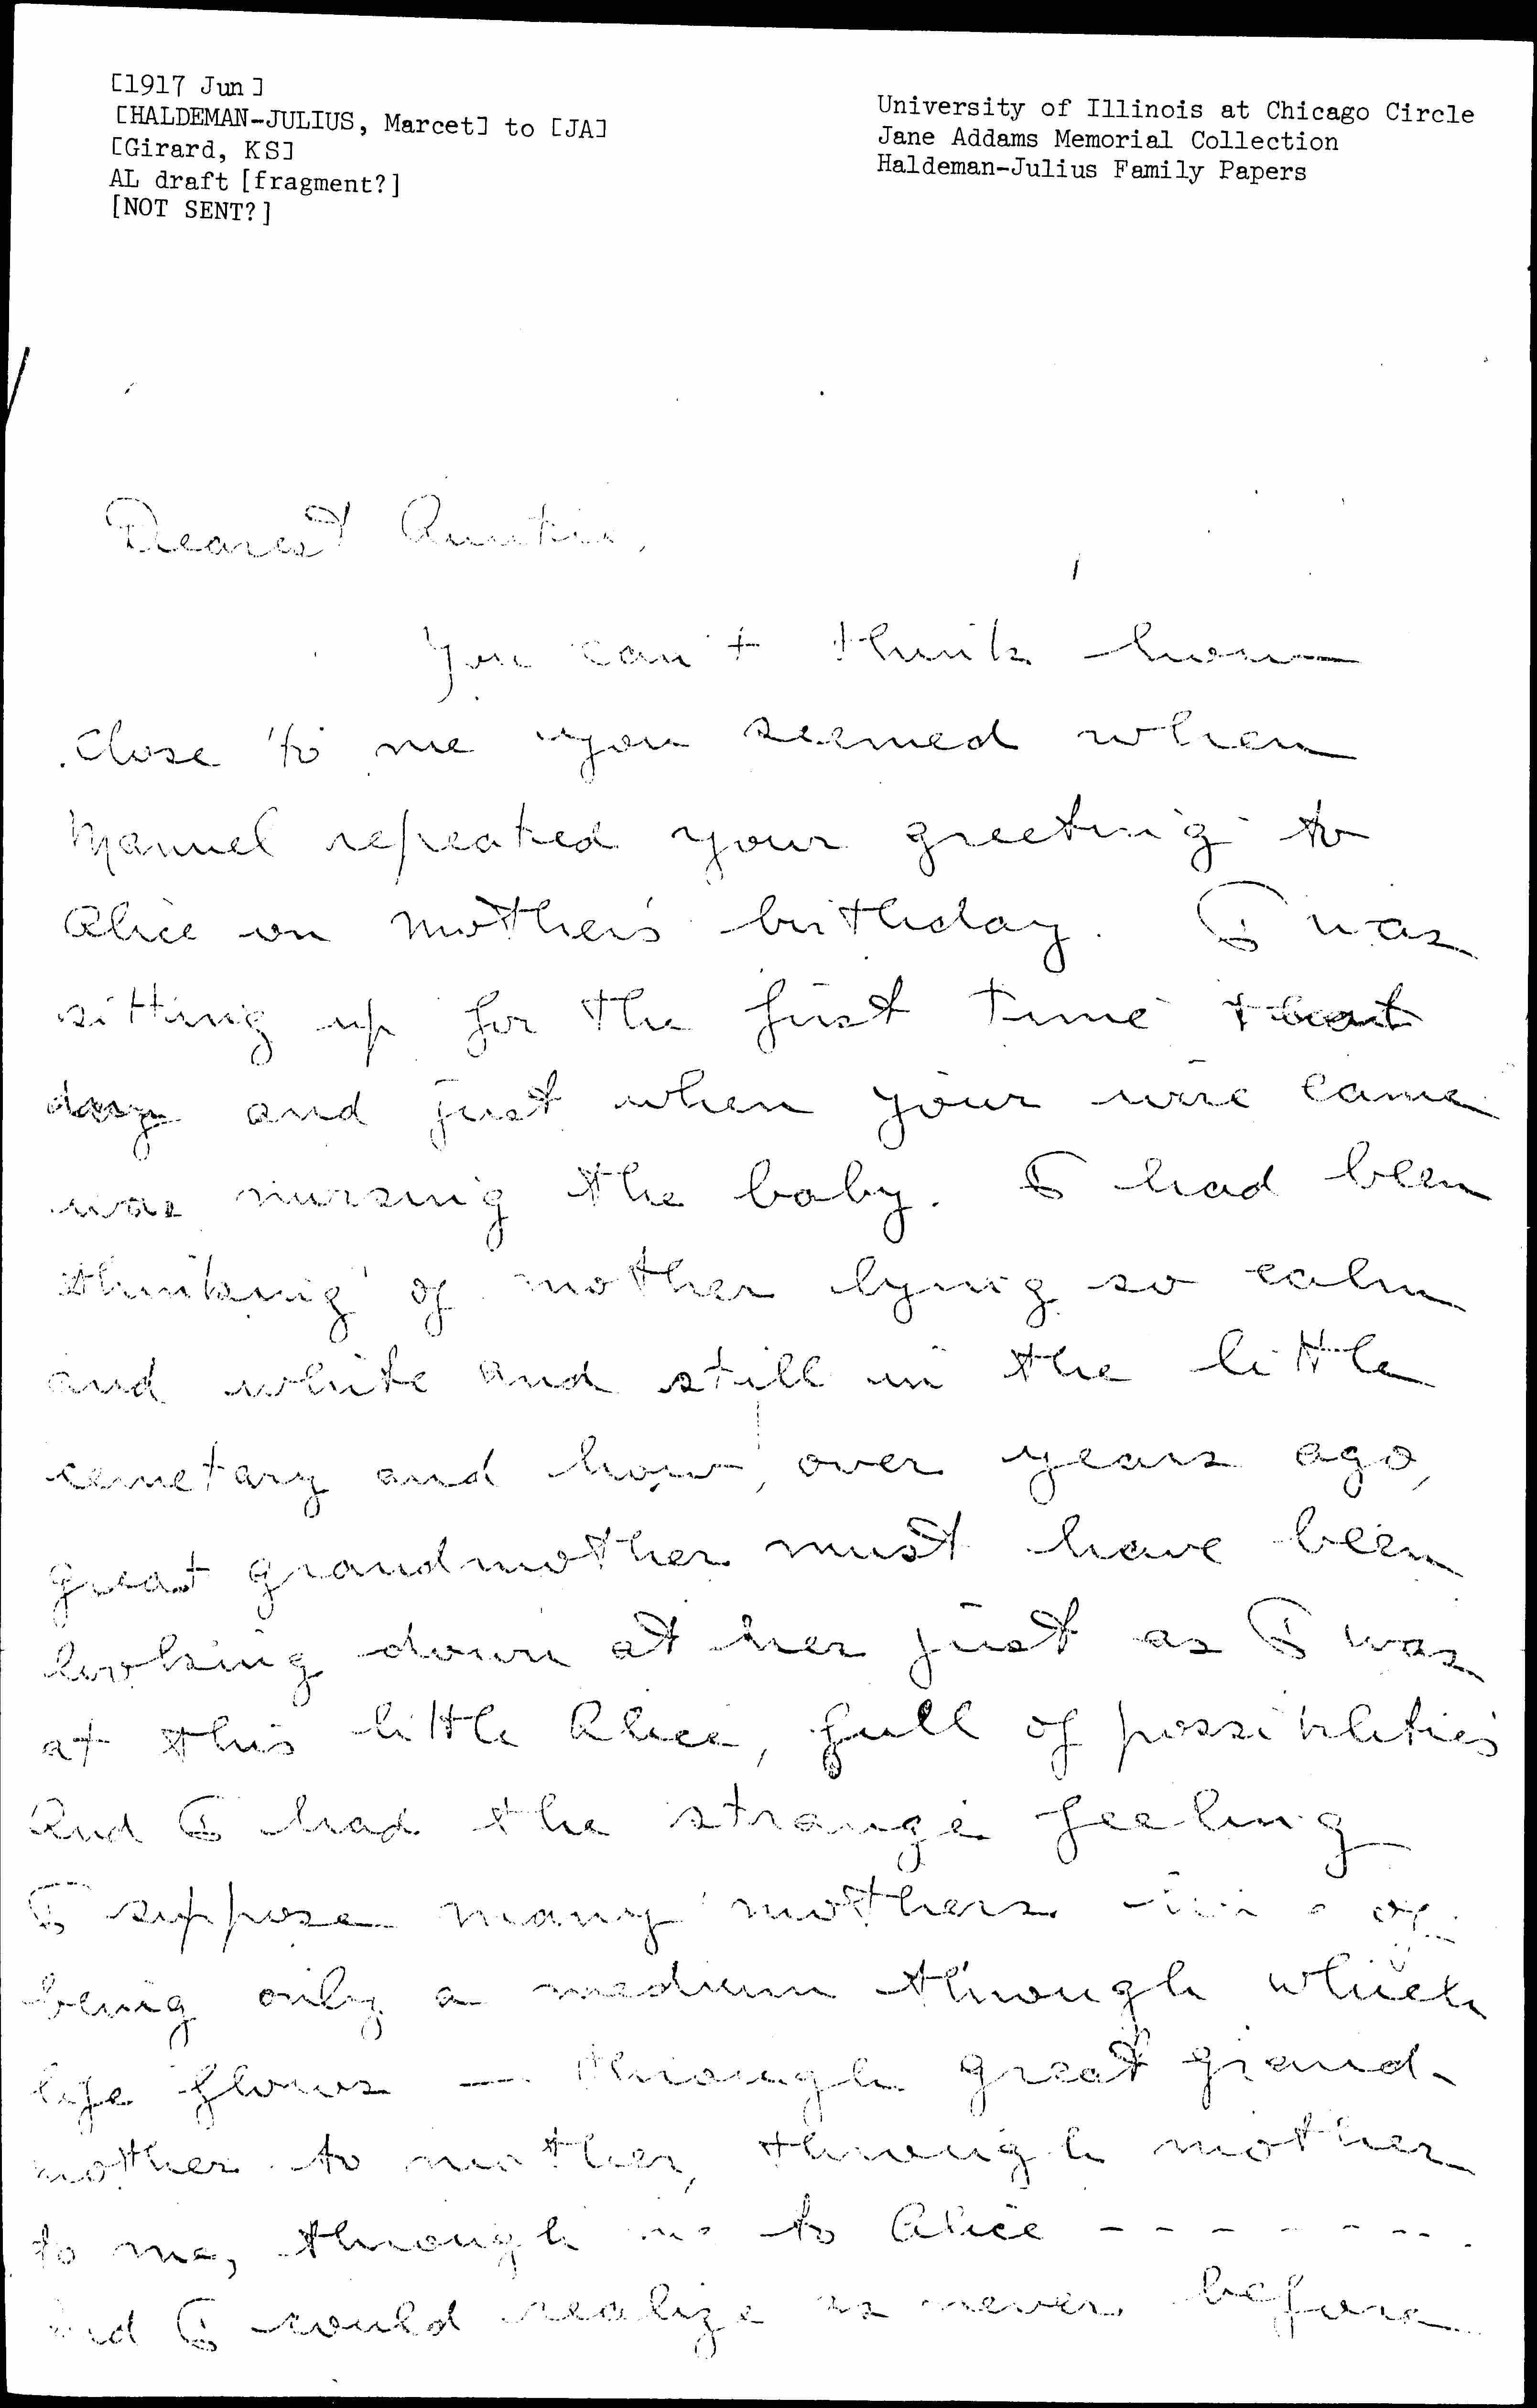 [1917 Jun]
[HALDEMAN-JULIUS, Marcet] to [JA]
[Girard, KS]
AL draft [fragment?]
[NOT SENT?]
University of Illinois at Chicago Circle
Jane Addams Memorial Collection
Haldeman-Julius Family Papers
Dearest Auntie,
You can't think how
close to me you seemed when
Manuel repeated your greeting to
Alice on mother's birthday. I was
sitting up for the first time that
day and just when your wire came
was nursing the baby. I had been
thinking of mother lying so calm
and white and still in the little
cemetary and how, over years ago,
great grandmother must have been
looking down at her just as I was
at this little Alice, full of possibilities
And I had the strange feeling
I suppose many mothers of
being only a medium through which
life flows — through great grand-
mother to mother, through mother
to me, through me to Alice - - - - - - -
And I could realize as never before